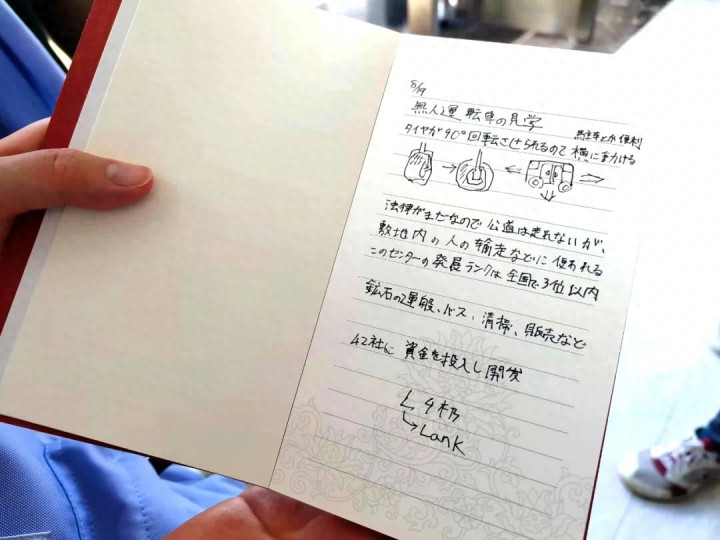 8/19
無人運転車の見学
駐車とか便利
タイヤが90°回転させられるので横に動ける
法律がまだなので公道は走れないが、
敷地内の人の輸送などに使われる
このセンターの発展ランクは全国で3位以内
鉱石の運般、バス、清掃、販売など
42社に資金を投入し開発
L4級
Lank